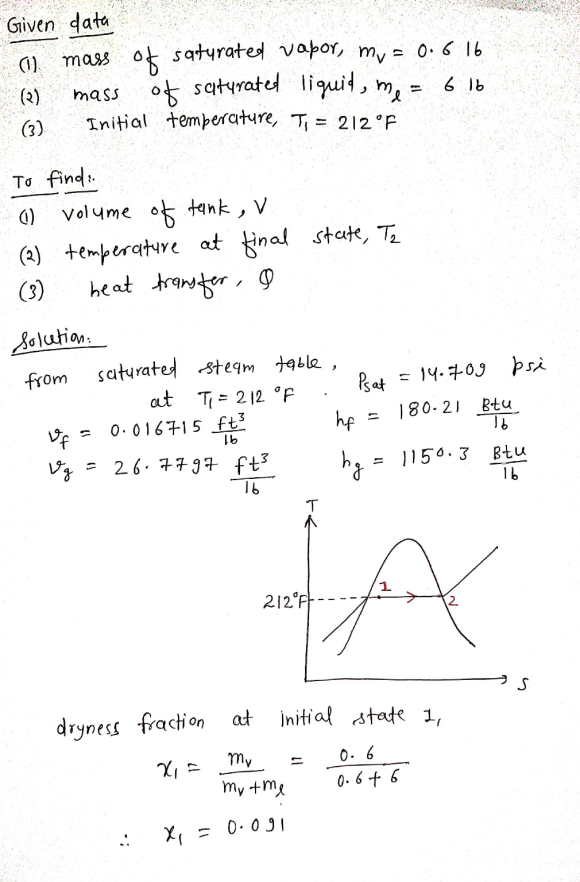 Given data
(1) mass of saturated vapor, mv = 0.6 lb
(2) mass of saturated liquid, ml = 6 lb
(3) Initial temperature, T1 = 212 °F
To find:
(1) volume of tank, V
(2) temperature at final state, T2
(3) heat transfer, Q
Solution:
from saturated steam table,
at T1 = 212 °F . Psat = 14.709 psi
vf = 0.016715 ft³/lb hf = 180.21 Btu/lb
vg = 26.7797 ft³/lb hg = 1150.3 Btu/lb
T
212°F 1 2
S
dryness fraction at initial state 1,
x1 = mv/(mv + ml) = 0.6/(0.6 + 6)
∴ x1 = 0.091